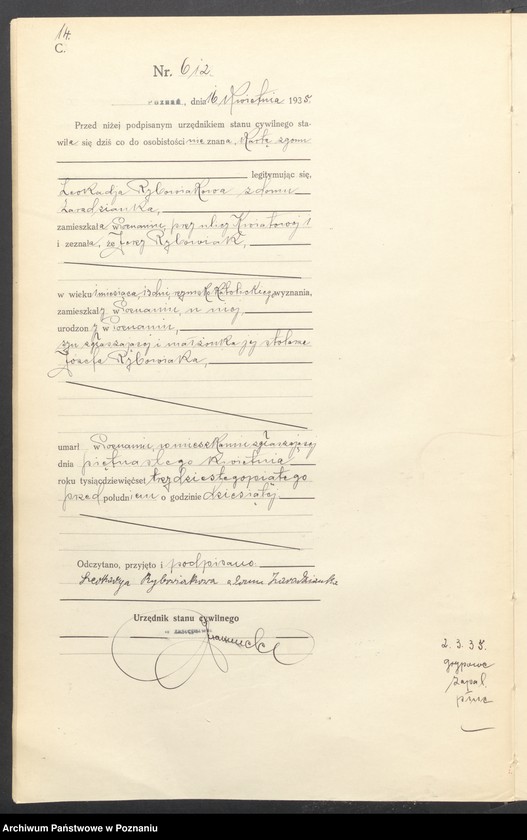 14.
C.
Nr. 612.
Poznań, dnia 16 Kwietnia 1935.
Przed niżej podpisanym urzędnikiem stanu cywilnego sta-
wiła się dziś co do osobistości nie znana, Kartą zgonu
legitymując się,
Leokadja Rybowiakowa z domu
zamieszkała w Poznaniu, przy ulicy Kwiatowej 1
i zeznała, że Jerzy Rybowiak,
w wieku 1 miesiąca 13 dni, rzymsko Katolickiego wyznania,
zamieszkały w Poznaniu, u niej,
urodzony w Poznaniu,
syn zgłaszającej i małżonka jej stolarza
Józefa Rybowiaka,
umarł w Poznaniu, w mieszkaniu zgłaszającej
dnia piętnastego Kwietnia
roku tysiącdziewięćset trzydziestegopiątego
przed południem o godzinie dziesiątej
Odczytano, przyjęto i podpisano.
Leokadya Rybowiakowa z domu
Urzędnik stanu cywilnego
w zastępstwie
2.3.35.
grypowe
zapal
płuc
Archiwum Państwowe w Poznaniu